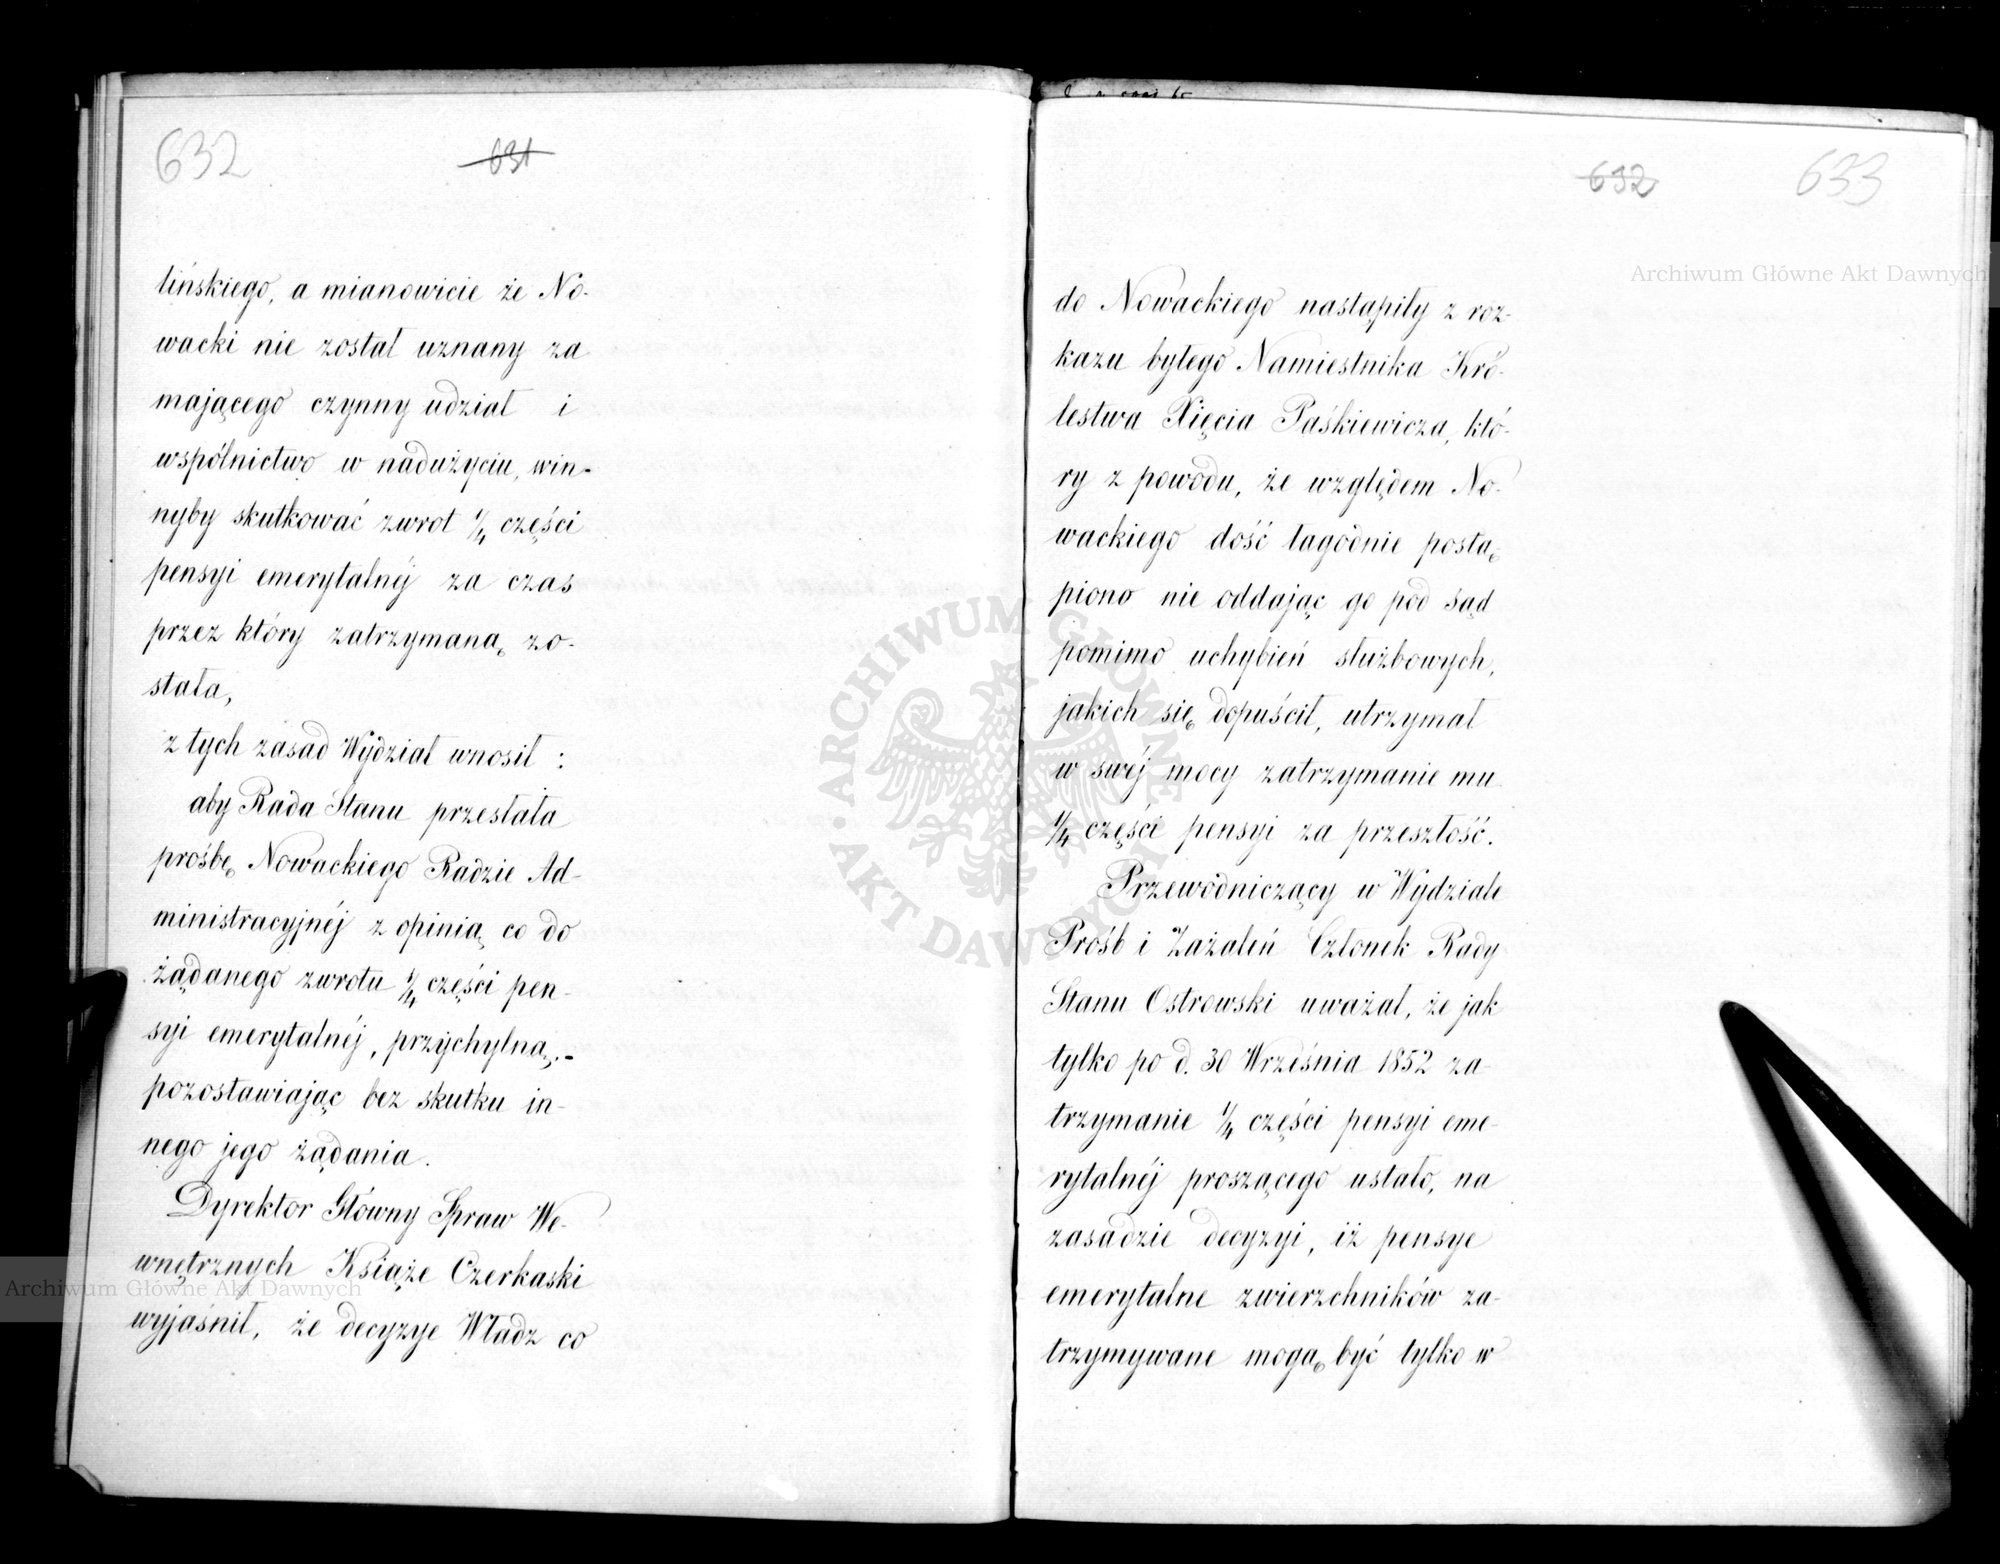 632
631
lińskiego, a mianowicie że No-
wacki nie został uznany za
mającego czynny udział i
wspólnictwo w nadużyciu, win-
nyby skutkować zwrot 1/4 części
pensyi emerytalnéj za czas
przez który zatrzymaną zo-
stała,
z tych zasad Wydział wnosił:
aby Rada Stanu przesłała
prośbę Nowackiego Radzie Ad-
ministracyjnéj z opinią co do
żądanego zwrotu 1/4 części pen-
syi emerytalnéj, przychylną,-
pozostawiając bez skutku in-
nego jego żądania.
Dyrektor Główny Spraw We-
wnętrznych Książe Czerkaski
wyjaśnił, że decyzye Władz co
632
633
do Nowackiego nastąpiły z roz-
kazu byłego Namiestnika Kró-
lestwa Xięcia Paśkiewicza, któ-
ry z powodu, że względem No-
wackiego dość łagodnie postą-
piono nie oddając go pod sąd
pomimo uchybień służbowych,
jakich się dopuścił, utrzymał
w swéj mocy zatrzymanie mu
1/4 części pensyi za przeszłość.
Przewodniczący w Wydziale
Próśb i Zażaleń Członek Rady
Stanu Ostrowski uważał, że jak
tylko po d. 30 Września 1852 za-
trzymanie 1/4 części pensyi eme-
rytalnéj proszącego ustało, na
zasadzie decyzyi, iż pensye
emerytalne zwierzchników za-
trzymywane mogą być tylko w
Archiwum Główne Akt Dawnych
Archiwum Główne Akt Dawnych
ARCHIWUM GŁÓWNE AKT DAWNYCH